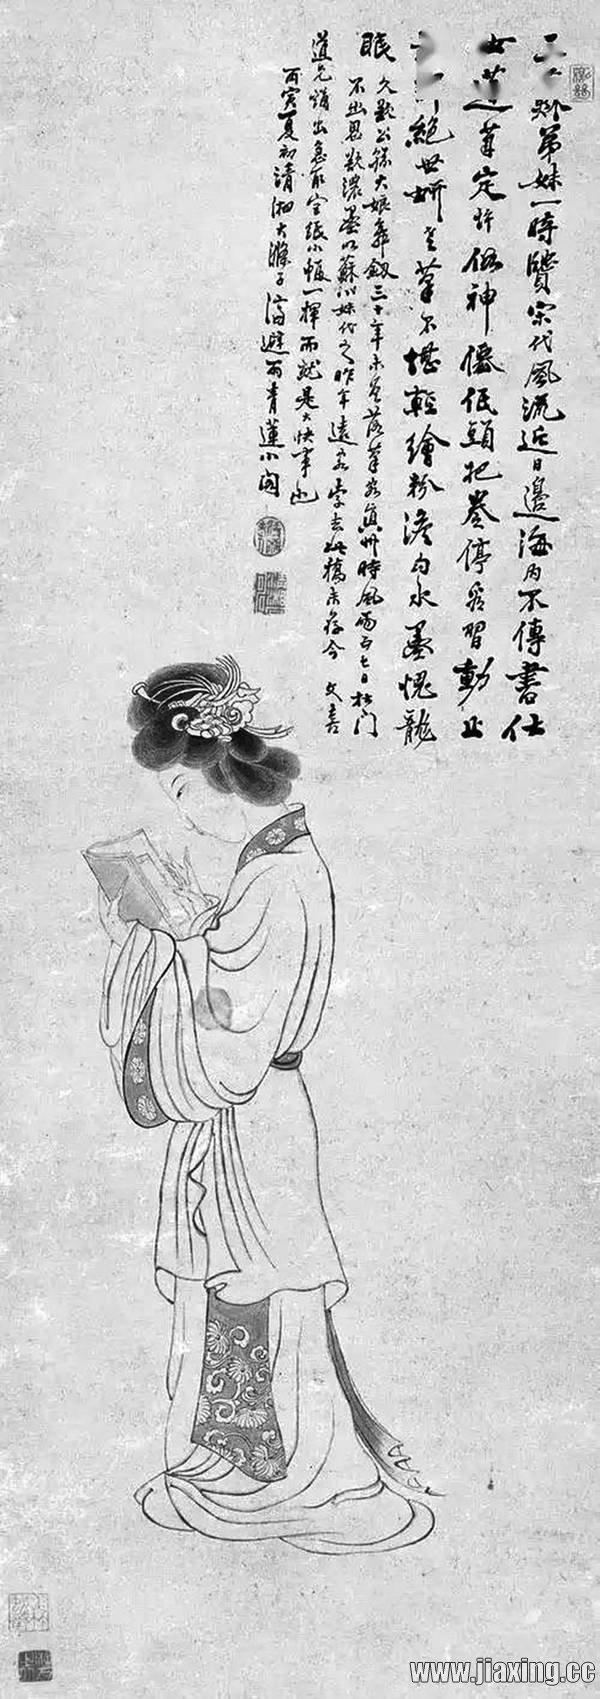 弟妹一時賢宋代風流近日邊海內不傳書仕
女蓮筆定許神僊低頭把卷停看習動止
絕世妍老筆不堪輕繪粉澹勻水墨愧龍
眠 久欲公孫大娘舞劔三十年未曾落筆客真州時風雨七日杜門
不出思欲濃墨以蘇小妹代之昨年遠客索去此稿未存今 文喜
道兄請出急取宣紙小幅一揮而就是大快事也
丙寅夏初清湘大滌子濟避雨青蓮小閣
www.jiaxing.cc